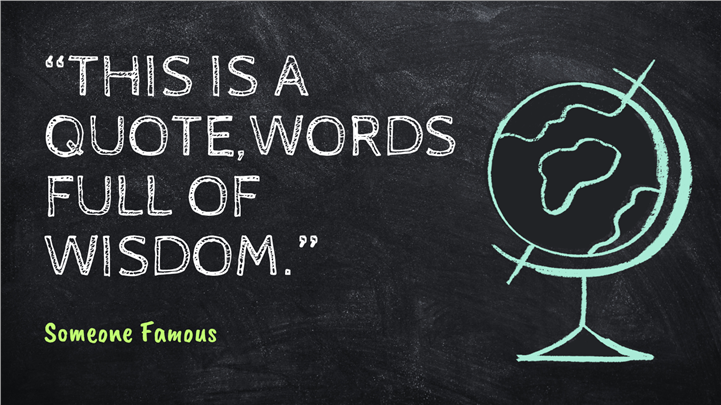 “THIS IS A
QUOTE,WORDS
FULL OF
WISDOM.”
Someone Famous